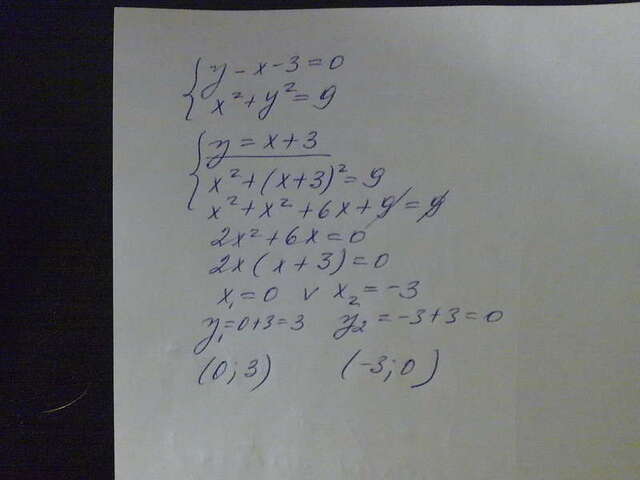 y - x - 3 = 0
x² + y² = 9
y = x + 3
x² + (x+3)² = 9
x² + x² + 6x + 9 = 9
2x² + 6x = 0
2x (x + 3) = 0
x₁ = 0 v x₂ = -3
y₁ = 0+3 = 3 y₂ = -3+3 = 0
(0; 3) (-3; 0)